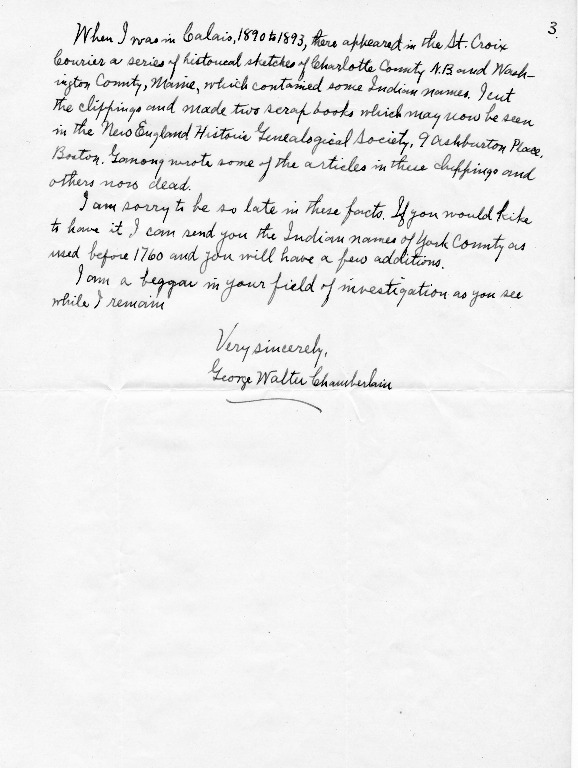 3.
When I was in Calais, 1890 to 1893, there appeared in the St. Croix
Courier a series of historical sketches of Charlotte County N.B and Wash-
ington County, Maine, which contained some Indian names. I cut
the clippings and made two scrap books which may now be seen
in the New England Historic Genealogical Society, 9 Ashburton Place,
Boston. Ganong wrote some of the articles in these clippings and
others now dead.
I am sorry to be so late in these facts. If you would like
to have it I can send you the Indian names of York County as
used before 1760 and you will have a few additions.
I am a beggar in your field of investigation as you see
while I remain
Very sincerely,
George Walter Chamberlain